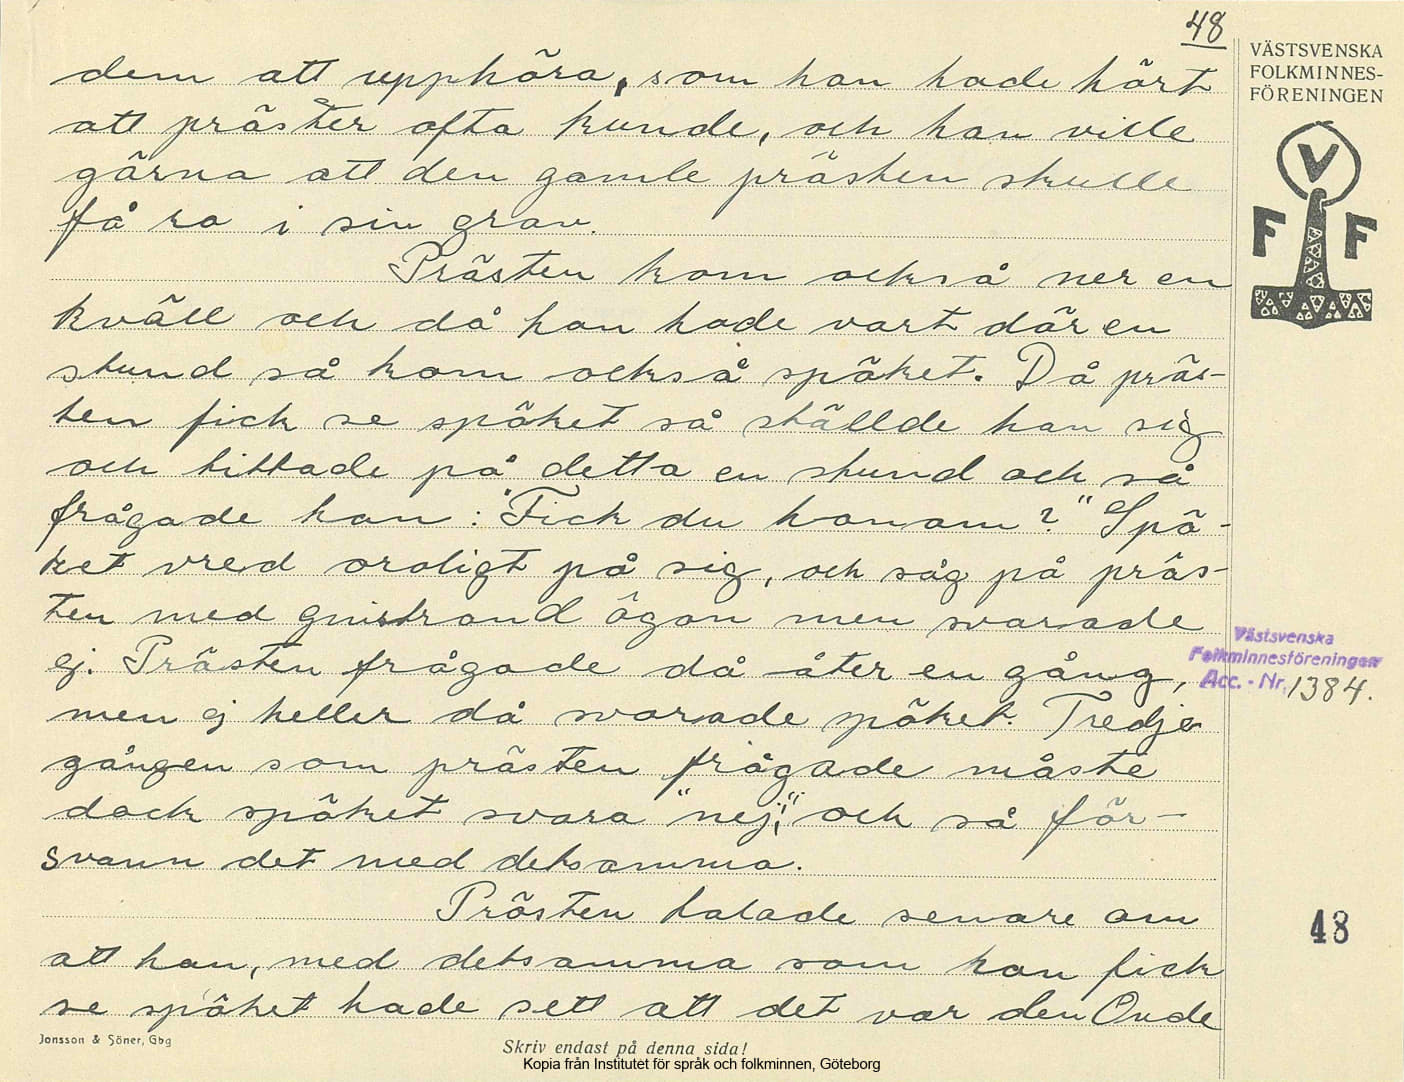 48
VÄSTSVENSKA
FOLKMINNES-
FÖRENINGEN
V
F F
dem att upphöra, som han hade hört
att präster ofta kunde, och han ville
gärna att den gamle prästen skulle
få ro i sin grav.
Prästen kom också ner en
kväll och då han hade vart där en
stund så kom också spöket. Då präs-
ten fick se spöket så ställde han sig
och tittade på detta en stund och så
frågade han: "Fick du honom?" Spö-
ket vred oroligt på sig, och såg på präs-
ten med gnistrand ögon men svarade
ej. Prästen frågade då åter en gång,
men ej heller då svarade spöket. Tredje
gången som prästen frågade måste
dock spöket svara "nej," och så för-
svann det med detsamma.
Prästen talade senare om
att han, med detsamma som han fick
se spöket hade sett att det var den Onde
Västsvenska
Folkminnesföreningen
Acc.-Nr. 1384.
48
Jonsson & Söner, Gbg
Skriv endast på denna sida!
Kopia från Institutet för språk och folkminnen, Göteborg